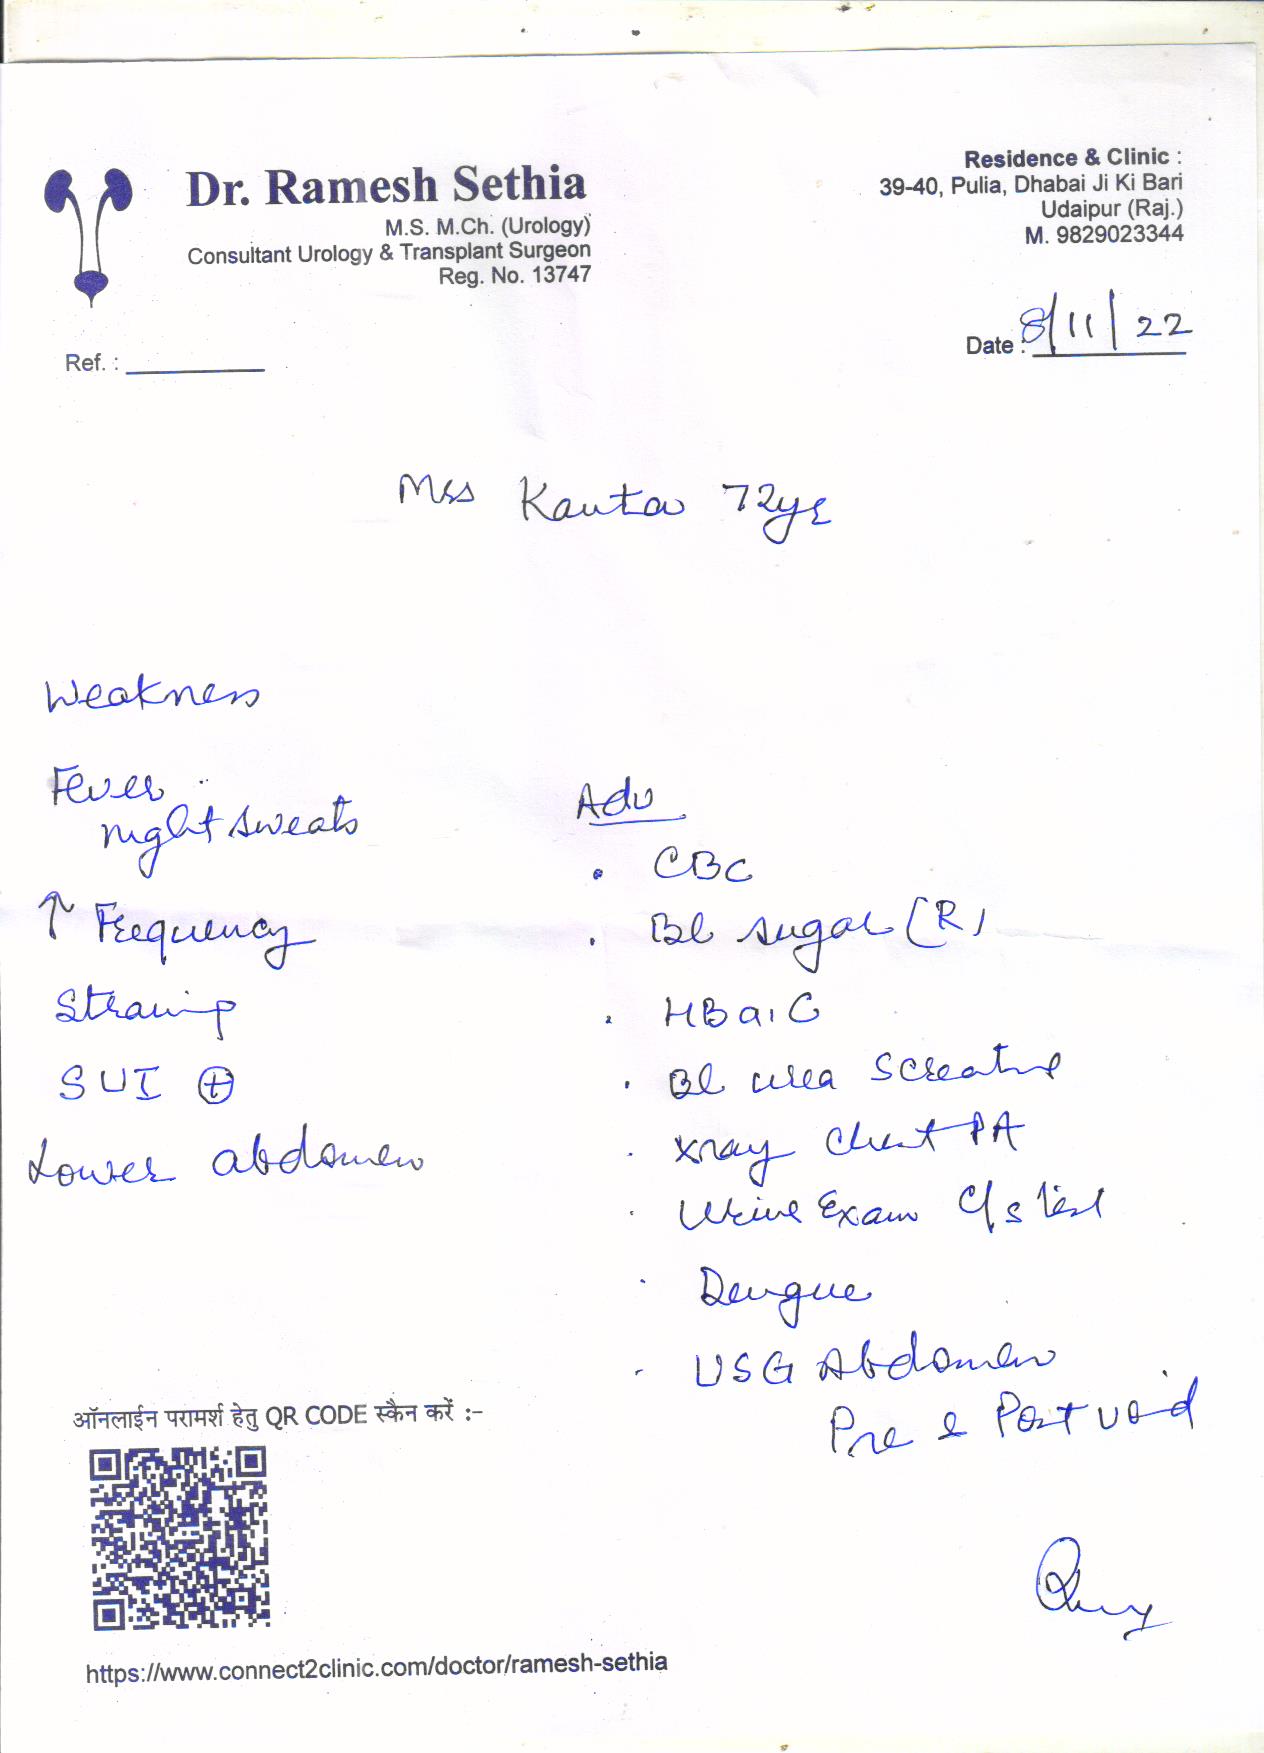 Dr. Ramesh Sethia
M.S. M.Ch. (Urology)
Consultant Urology & Transplant Surgeon
Reg. No. 13747
Residence & Clinic :
39-40, Pulia, Dhabai Ji Ki Bari
Udaipur (Raj.)
M. 9829023344
Ref. :
Date : 8/11/22
Mrs Kanta 72yr
Weakness
Fever
night sweats
↑ Frequency
Straing
SUI ⊕
Lower abdomen
Adv
• CBC
• Bl sugar (R)
• HBa1C
• Bl urea S Creatine
• Xray Chest PA
• Urine Exam C/s test
• Dengue
• USG Abdomen
Pre & Post void
ऑनलाईन परामर्श हेतु QR CODE स्कैन करें :-
https://www.connect2clinic.com/doctor/ramesh-sethia